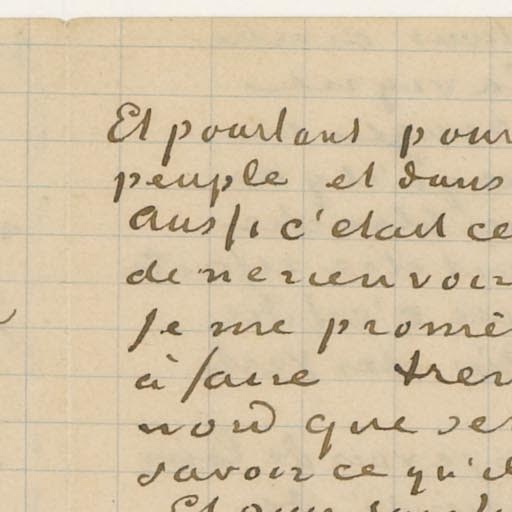 Et pourtant pour
peuple et dans
Aussi c'etait ce
de ne rien voir
je me promè
à faire
nord que se
savoir ce qu'il
Et